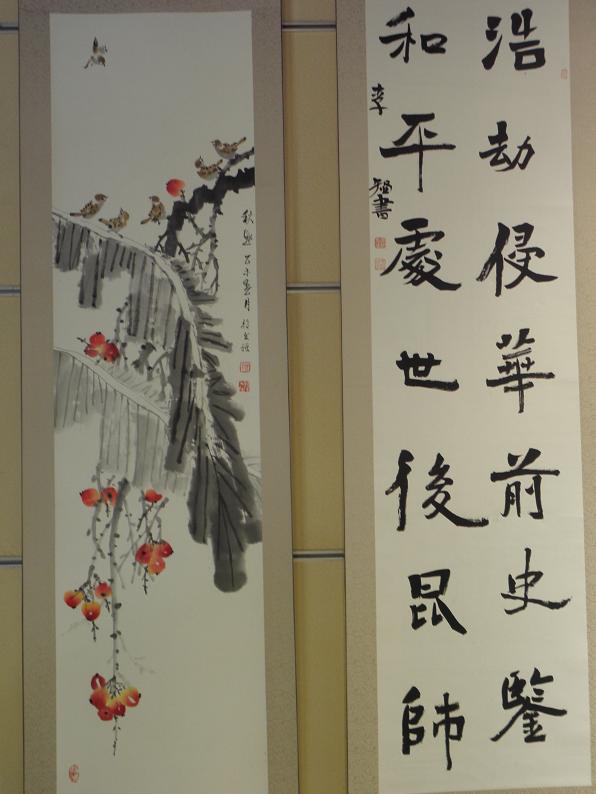 浩劫侵華前史鑒
和平處世後昆師
李
書
秋
月